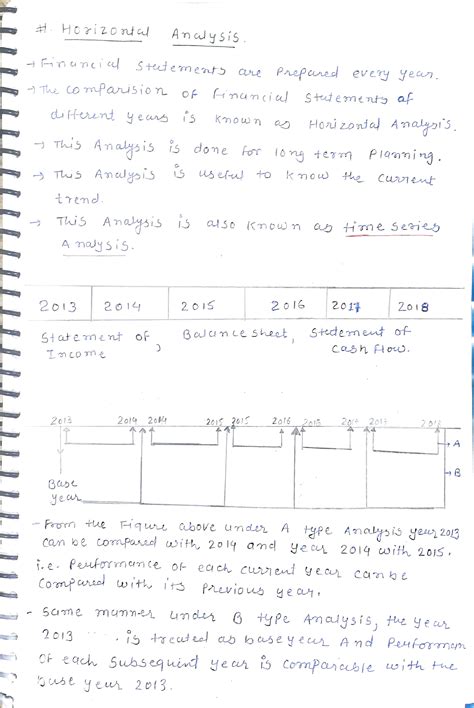 # Horizontal Analysis.
→ Financial Statements are Prepared every year.
→ The comparision of financial Statements of
different years is known as Horizontal Analysis.
→ This Analysis is done for long term Planning.
→ This Analysis is useful to know the current
trend.
→ This Analysis is also known as time series
Analysis.
2013 2014 2015 2016 2017 2018
Statement of Income, Balance sheet, Statement of Cash flow.
2013 2014 2014 2015 2015 2016 2017
A
B
Base
year
- From the Figure above under A type Analysis year 2013
can be compared with 2014 and year 2014 with 2015.
i.e. Performance of each current year can be
compared with its previous year.
- Same manner under B type Analysis, the year
2013 ..... is treated as base year And Performan
of each Subsequent year is comparable with the
base year 2013.